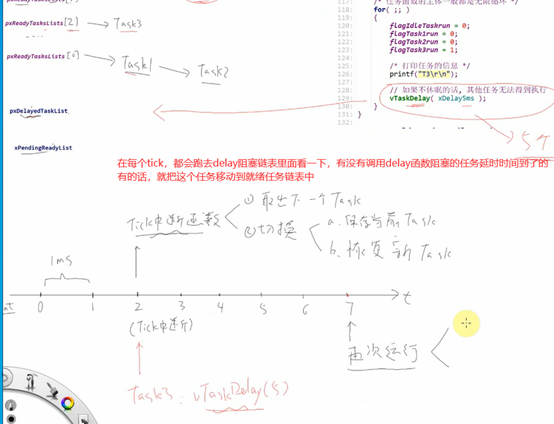 pxReadyTasksLists[2] Task3
pxReadyTasksLists[0] Task1 Task2
pxDelayedTaskList
xPendingReadyList
117: /* 任务函数的主体一般都是无限循环 */
118: for( ;; )
119: {
120: flagIdleTaskrun = 0;
121: flagTask1run = 0;
122: flagTask2run = 0;
123: flagTask3run = 1;
124:
125: /* 打印任务的信息 */
126: printf("T3\r\n");
127:
128: // 如果不休眠的话, 其他任务无法得到执行
129: vTaskDelay( xDelay5ms );
130: }
131: }
132:
5个
在每个tick，都会跑去delay阻塞链表里面看一下，有没有调用delay函数阻塞的任务延时时间到了的
有的话，就把这个任务移动到就绪任务链表中
Tick中断函数
① 取出下一个Task
② 切换
a. 保存当前Task
b. 恢复新Task
1ms
0 1 2 3 4 5 6 7 t
(Tick中断)
再次运行
Task3: vTaskDelay(5)